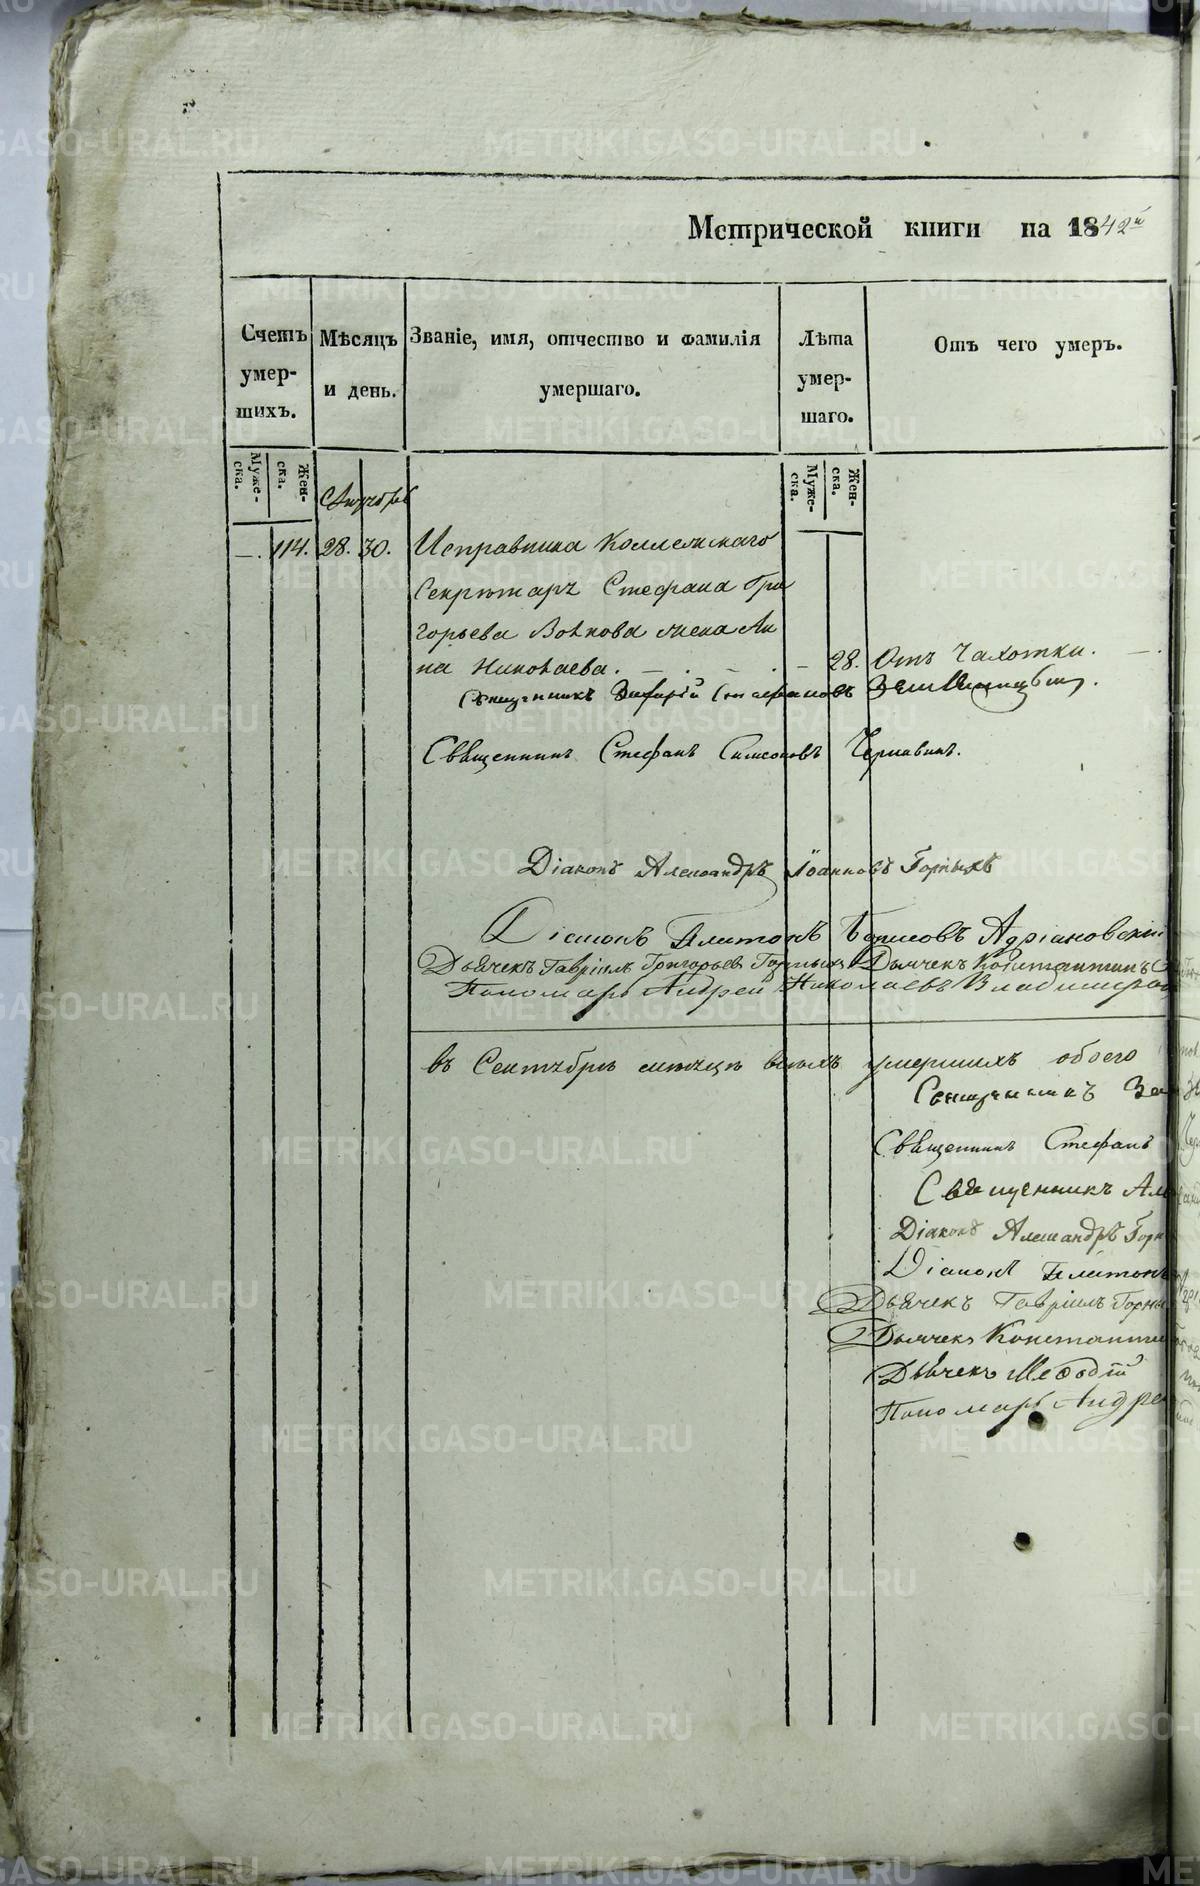 Метрической книги на 1842й
Счетъ умер- шихъ.
Мѣсяцъ и день.
Званіе, имя, отчество и фамилія умершаго.
Лѣта умер- шаго.
Отъ чего умеръ.
Муже- ска.
Жен- ска.
Муже- ска.
Жен- ска.
—. 114. 28. 30. Исправника Коллежскаго
Секретаръ Стефана Гри
горьева Волкова жена Ан
на Николаева. — . — . — 28. Отъ Чахотки. —
Священникъ Стефановъ
Священникъ Стефанъ Симеоновъ Чернавинъ.
Діаконъ Александръ Іоанновъ Горныхъ
Діаконъ Платонъ Борисовъ Адріановскій
Дьячекъ Гавріилъ Григорьевъ Горныхъ Дьячекъ Константинъ
Пономарь Андрей Николаевъ
въ Сентябрѣ мѣсяцѣ всѣхъ умершихъ обоего
Священникъ За
Священникъ Стефанъ
Священникъ Але
Діаконъ Александръ Горн
Діаконъ Платонъ
Дьячекъ Гавріилъ Горны
Дьячекъ Константи
Дьячекъ Меѳодій
Пономарь Андре
METRIKI.GASO-URAL.RU